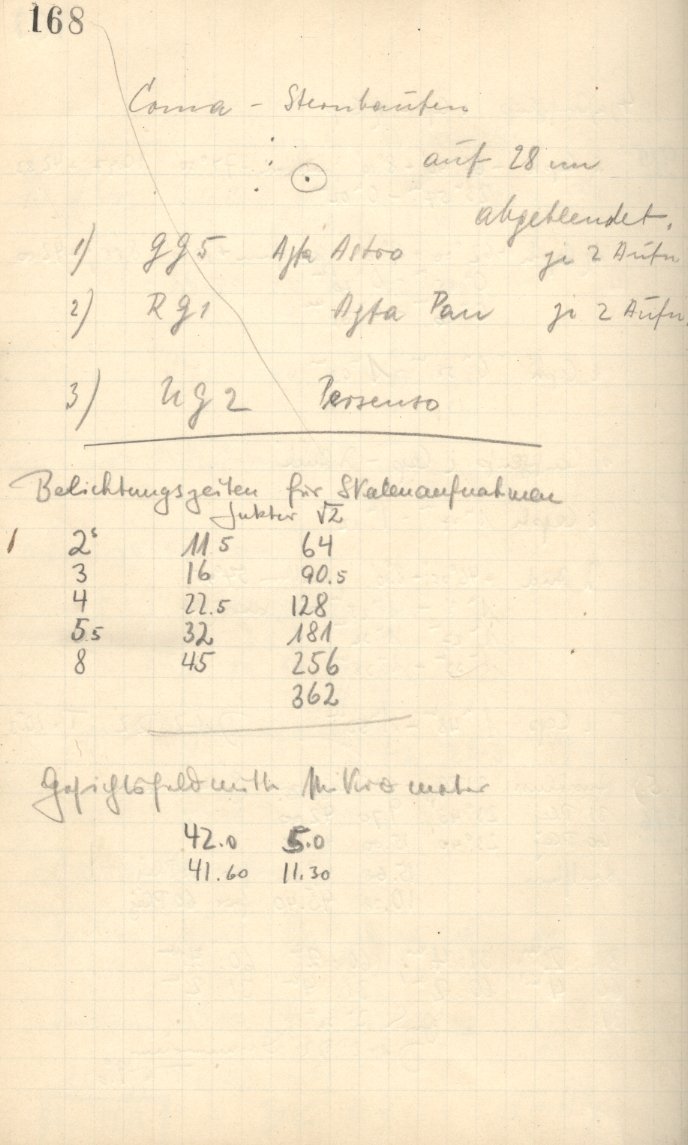 168
Coma - Sternhaufen
auf 28 cm
abgeblendet.
1) GG5 Agfa Astro je 2 Aufn
2) RG1 Agfa Pan je 2 Aufn.
3) UG2 Persenso
Belichtungszeiten für Skalenaufnahmen
Faktor √2
1 2s 11.5 64
3 16 90.5
4 22.5 128
5.5 32 181
8 45 256
362
Gesichtsfeldmitte Mikrometer
42.0 5.0
41.60 11.30